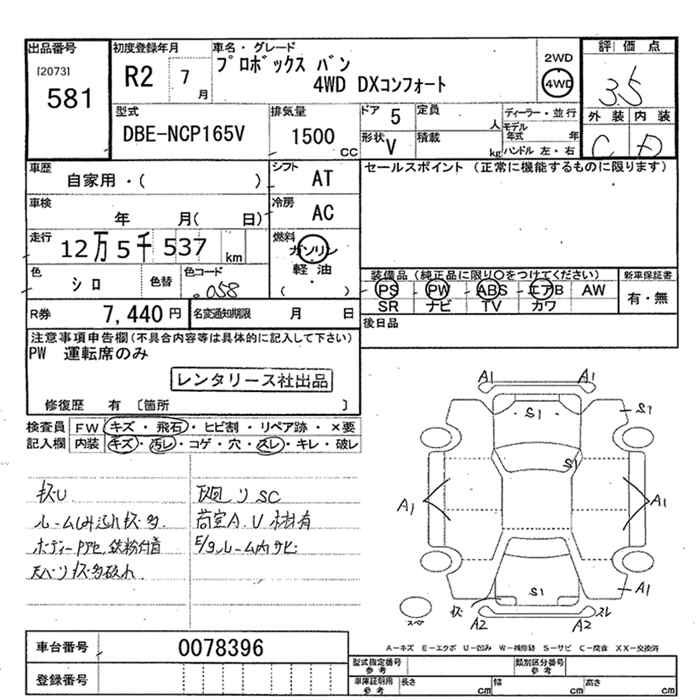 出品番号 初度登録年月 車名・グレード 評価点
[2073] 581 R2 7月 プロボックス バン 2WD
4WD DXコンフォート 4WD 3.5
型式 排気量 ドア 5 定員 人 ディーラー・並行 外装 内装
DBE-NCP165V 1500 CC 形状 V 積載 kg モデル年式 年 ハンドル 左・右 C D
車歴 シフト セールスポイント (正常に機能するものに限ります)
自家用・( ) AT
車検 冷房
年 月( 日) AC
走行 燃料
12万5千537 km ガソリン
軽油
( )
色 色替 色コード 装備品 (純正品に限り○をつけてください) 新車保証書
シロ 058 PS PW ABS エアB AW 有・無
SR ナビ TV カワ
R券 7,440円 名変通知期限 月 日 後日品
注意事項申告欄(不具合内容等は具体的に記入して下さい)
PW 運転席のみ
レンタリース社出品
修復歴 有 [箇所 ]
検査員 FW キズ・飛石・ヒビ割・リペア跡・×要
記入欄 内装 キズ・汚レ・コゲ・穴・スレ・キレ・破レ
キズU SC
ルーム キズ多
荷室A.U 有
ボディー 鉄粉付着
E/gルーム内サビ
A1 A1
S1 S1
S1
A1 A1
S1 A1
キズ スレ
スペア A2 A2
A-キズ E-エクボ U-凹み W-補修跡 S-サビ C-腐食 XX-交換済
車台番号 0078396
型式指定番号 参考 類別区分番号 参考
登録番号 車庫証明用 参考 長さ cm 幅 cm 高さ cm